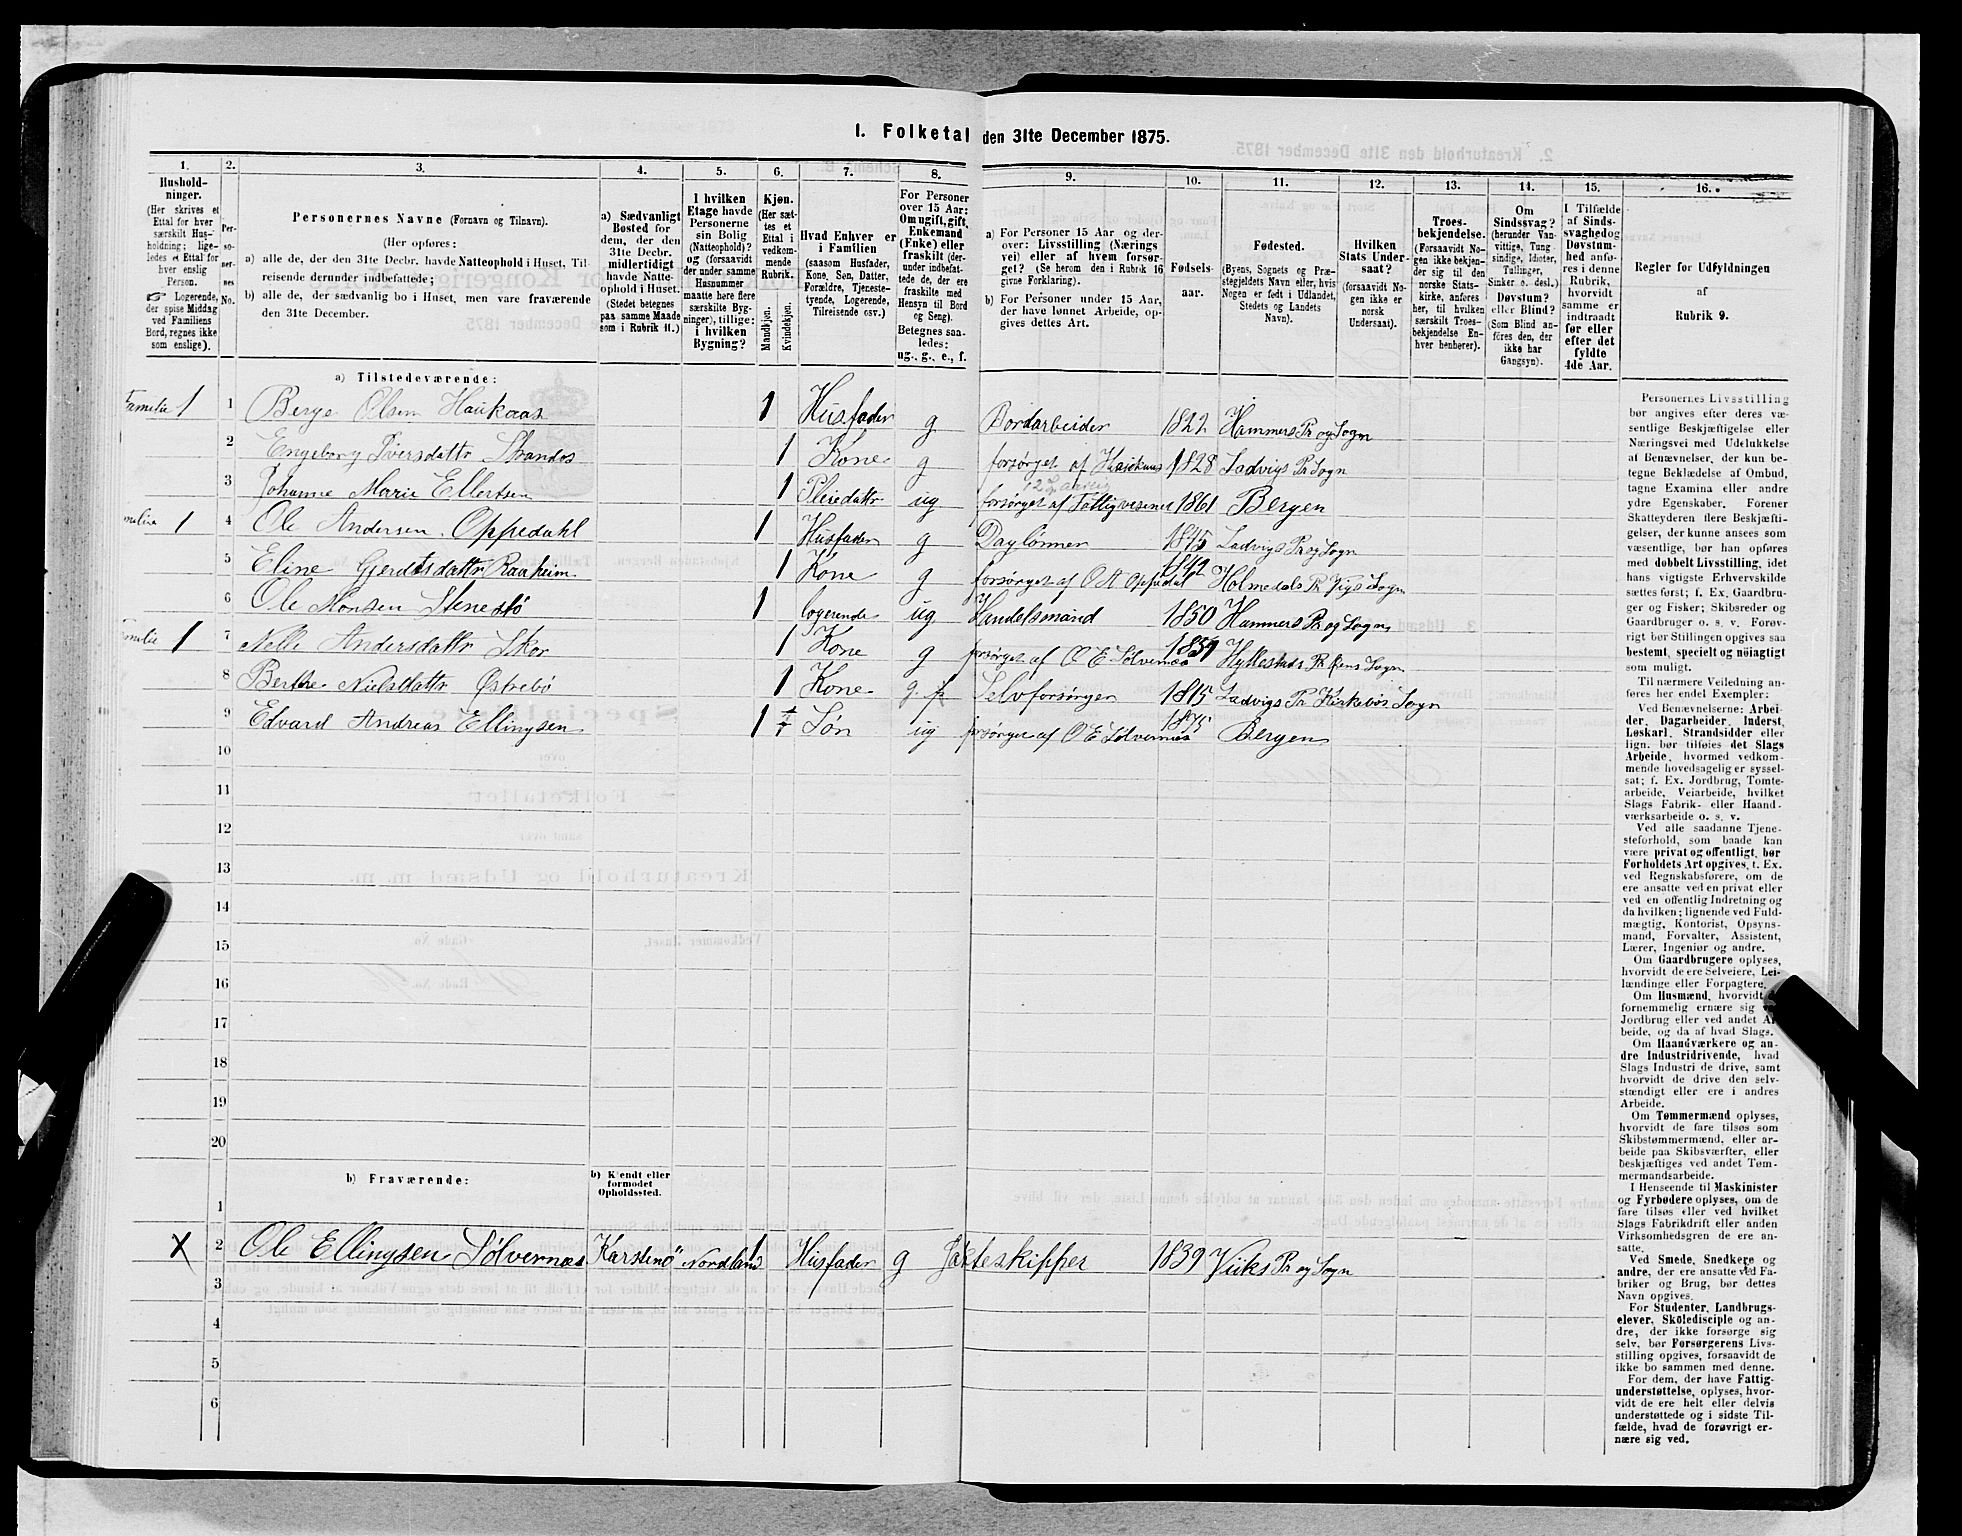 I. Folketal den 31te December 1875.
1.
Hushold-
ninger.
(Her skrives et
Ettal for hver
særskilt Hus-
holdning; lige-
ledes et Ettal for
hver enslig
Person.
Logerende,
der spise Middag
ved Familiens
Bord, regnes ikke
som enslige).
2.
Per-
so-
ner-
nes
No.
3.
Personernes Navne (Fornavn og Tilnavn).
(Her opføres:
a) alle de, der den 31te Decbr. havde Natteophold i Huset, Til-
reisende derunder indbefattede;
b) alle de, der sædvanlig bo i Huset, men vare fraværende
den 31te December.
4.
a) Sædvanligt
Bosted for
dem, der den
31te Decbr.
midlertidigt
havde Natte-
ophold i Huset.
(Stedet betegnes
paa samme Maade
som i Rubrik 11.)
5.
I hvilken
Etage havde
Personerne
sin Bolig
(Natteophold)?
og (forsaavidt
der under samme
Husnummer
maatte høre flere
særskilte Byg-
ninger), tillige:
i hvilken
Bygning?
6.
Kjøn.
(Her sæt-
tes et
Ettal i
vedkom-
mende
Rubrik.
Mandkjøn.
Kvindekjøn.
7.
Hvad Enhver er
i Familien
(saasom Husfader,
Kone, Søn, Datter,
Forældre, Tjeneste-
tyende, Logerende,
Tilreisende osv.)
8.
For Personer
over 15 Aar:
Om ugift, gift,
Enkemand
(Enke) eller
fraskilt (der-
under indbefat-
tede de, der ere
fraskilte med
Hensyn til Bord
og Seng).
Betegnes saa-
ledes:
ug., g., e., f.
9.
a) For Personer 15 Aar og der-
over: Livsstilling (Nærings
vei) eller af hvem forsør-
get? (Se herom den i Rubrik 16
givne Forklaring).
b) For Personer under 15 Aar,
der have lønnet Arbeide, op-
gives dettes Art.
10.
Fødsels-
aar.
11.
Fødested.
(Byens, Sognets og Præ-
stegjeldets Navn eller, hvis
Nogen er født i Udlandet,
Stedets og Landets
Navn).
12.
Hvilken
Stats Under-
saat?
(forsaavidt No-
gen ikke er
norsk
Undersaat).
13.
Troes-
bekjendelse.
(Forsaavidt No-
gen ikke bekjen-
der sig til den
norske Stats-
kirke, anføres
her, til hvilken
særskilt Troes-
bekjendelse En-
hver henhører).
14.
Om
Sindssvag?
(herunder Van-
vittige, Tung-
sindige, Idioter,
Tullinger,
Sinker o. desl.)
Døvstum?
eller Blind?
(Som Blind an-
føres den, der
ikke har
Gangsyn).
15.
I Tilfælde
af Sinds-
svaghed og
Døvstum-
hed anfø-
res i denne
Rubrik,
hvorvidt
samme er
indtraadt
før eller
efter det
fyldte
4de Aar.
16.
Regler for Udfyldningen
af
Rubrik 9.
a) Tilstedeværende:
Familie 1 1 Berge Olsen Haukaas 1 Husfader g Bordarbeider 1822 Hammers Pr og Sogn
2 Engeborg Iversdattr Strandos 1 Kone g forsørget af 1828 Ladvigs Pr Sogn
3 Johanne Marie Ellertsen 1 Pleiedattr ug forsørget af Fattigvæsenet 1861 Bergen
1 4 Ole Andersen Oppedahl 1 Husfader g Daglønner 1845 Ladvigs Pr og Sogn
5 Eline Gjerdtsdattr Raaheim 1 Kone g forsørget af O A Oppedal 1842 Holmedals Pr Sogn
6 Ole Monsen Stenesø 1 logerende ug Handelsmand 1850 Hammers Pr og Sogn
Familie 1 7 Nelle Andersdattr Skor 1 Kone g forsørget af O E Sølvernæs Hyllestads Pr Sogn
8 Berthe Nielsdattr Østrebø 1 Kone g Selvforsørger 1815 Ladvigs Pr Kirkebøs Sogn
9 Edvard Andreas Ellingsen 1 Søn ug forsørget af O E Sølvernæs 1875 Bergen
10
11
12
13
14
15
16
17
18
19
20
b) Fraværende:
b) Kjendt eller
formodet
Opholdssted.
1
X 2 Ole Ellingsen Sølvernæs Karstenö Nordland 1 Husfader g Jægteskipper 1839 Viiks Pr og Sogn
3
4
5
6
Personernes Livsstilling
bør angives efter deres væ-
sentlige Beskjæftigelse eller
Næringsvei med Udelukkelse
af Benævnelser, der kun be-
tegne Beklædelse af Ombud,
tagne Examina eller andre
ydre Egenskaber. Forener
Skatteyderen flere Beskjæfti-
gelser, der kunne ansees som
væsentlige, bør han opføres
med dobbelt Livsstilling, idet
hans vigtigste Erhvervskilde
sættes først; f. Ex. Gaardbru-
ger og Fisker; Skibsreder og
Gaardbruger o. s. v. Forøv-
rigt bør Stillingen opgives saa
bestemt, specielt og nöiagtigt
som muligt.
Til nærmere Veiledning an-
føres her endel Exempler:
Ved Benævnelserne: Arbei-
der, Dagarbeider, Inderst,
Løskarl, Strandsidder eller
lign. bør tilføies det Slags
Arbeide, hvormed vedkom-
mende hovedsagelig er syssel-
sat; f. Ex. Jordbrug, Tomte-
arbeide, Veiarbeide, hvilket
Slags Fabrik- eller Haand-
værksarbeide o. s. v.
Ved alle saadanne Tjene-
steforhold, som baade kan
være privat og offentligt, bør
Forholdets Art opgives, t. Ex.
ved Regnskabsførere, om de
ere ansatte ved en privat eller
ved en offentlig Indretning og
da hvilken; lignende ved Fuld-
mægtig, Kontorist, Opsyns-
mand, Forvalter, Assistent,
Lærer, Ingeniør og andre.
Om Gaardbrugere oplyses,
hvorvidt de ere Selveiere, Lei-
lændinge eller Forpagtere.
Om Husmænd, hvorvidt
fornemmelig ernære sig
Jordbrug eller ved andet Ar-
beide, og da af hvad Slags.
Om Haandværkere og an-
dre Industridrivende, hvad
Slags Industri de drive, samt
hvorvidt de drive den selv-
stændigt eller ere i andres
Arbeide.
Om Tømmermænd oplyses,
hvorvidt de fare tilsøs som
Skibstømmermænd, eller ar-
beide paa Skibsværfter, eller
beskjæftiges ved andet Tøm-
mermandsarbeide.
I Henseende til Maskinister
og Fyrbødere oplyses, om de
fare tilsøs eller ved hvilket
Slags Fabrikdrift eller anden
Virksomhedsgren de ere an-
satte.
Ved Smede, Snedkere og
andre, der ere ansatte ved Fa-
briker og Brug, bør dettes
Navn opgives.
For Studenter, Landbrugs-
elever, Skoledisciple og an-
dre, der ikke forsørge sig
selv, bør Forsørgerens Livs-
stilling opgives, forsaavidt de
ikke bo sammen med denne.
For dem, der have Fattig-
understøttelse, oplyses, hvor-
vidt de ere helt eller delvis
understøttede og i sidste Til-
fælde, hvad de forøvrigt er-
nære sig ved.